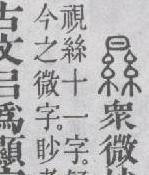 㬎衆微
視絲十一字。
今之微字。眇
古文㠯爲顯